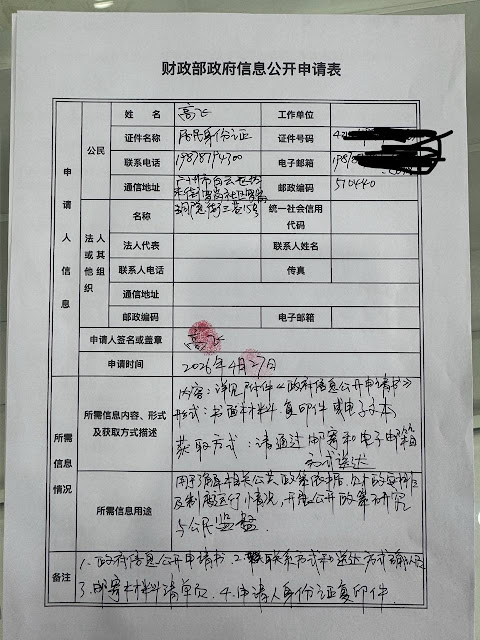 财政部政府信息公开申请表
申请人信息
公民
姓 名 高飞 工作单位
证件名称 居民身份证 证件号码
联系电话 19878794300 电子邮箱
通信地址 广州市白云区 邮政编码 510440
法人或其他组织
名称 统一社会信用代码
法人代表 联系人姓名
联系人电话 传真
通信地址
邮政编码 电子邮箱
申请人签名或盖章 高飞
申请时间 2026年4月27日
所需信息情况
所需信息内容、形式及获取方式描述
内容：详见附件《政府信息公开申请书》
形式：书面材料复印件或电子文本
获取方式：请通过邮寄和电子邮箱
方式送达
所需信息用途
用于了解相关公共政策依据、财政安排
及制度运行情况，开展公开政策研究
与公民监督.
备注
1.政府信息公开申请书.2.联系方式和送达方式确认
3.邮寄材料清单页.4.申请人身份证复印件.